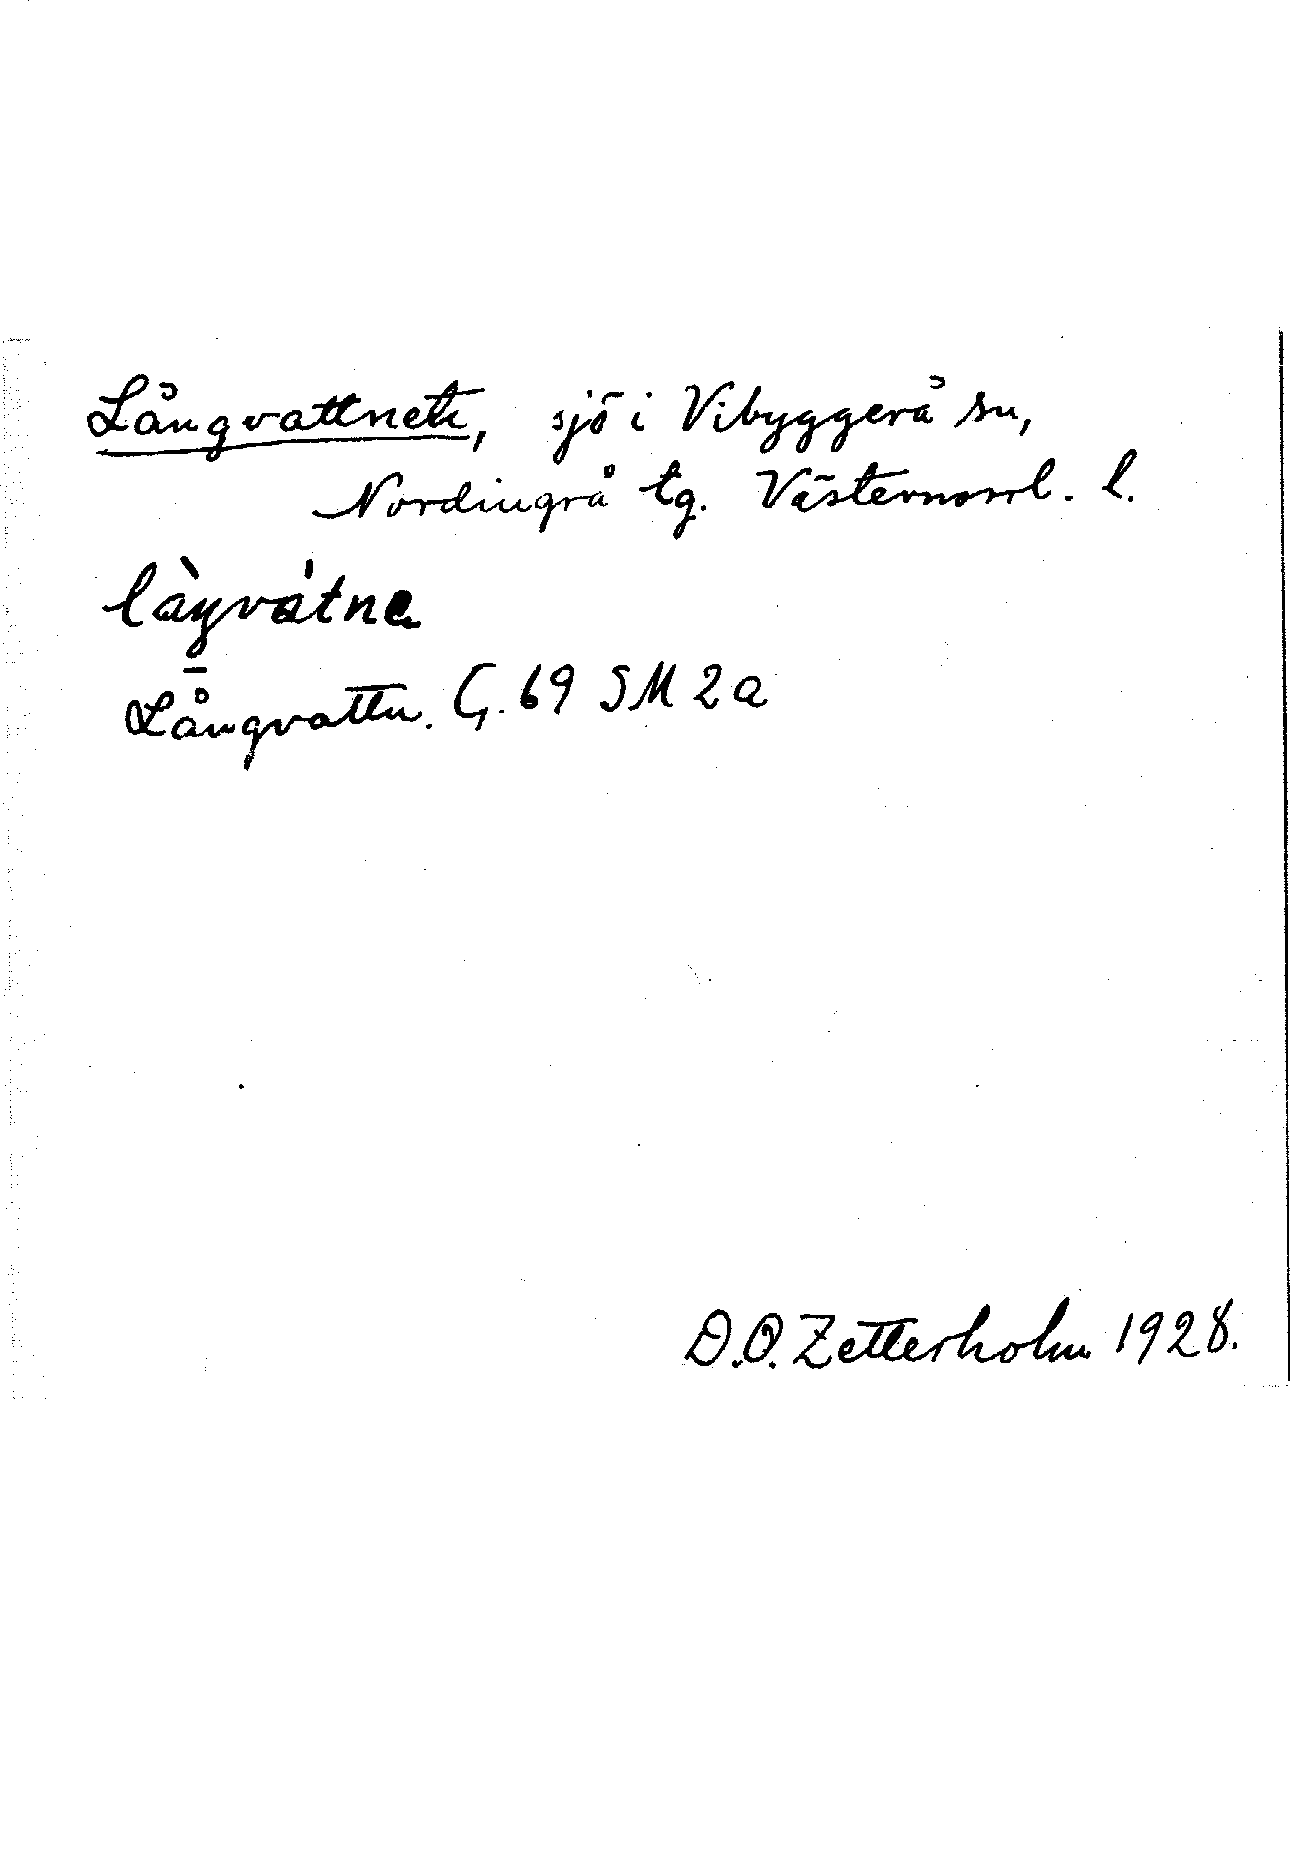 Långvattnet, sjö i Vibyggerå sn,
Nordingrå tg. Västernorrl. l.
làŋvátnɐ
Långvattn. G. 69 SM 2a
D.O. Zetterholm 1928.